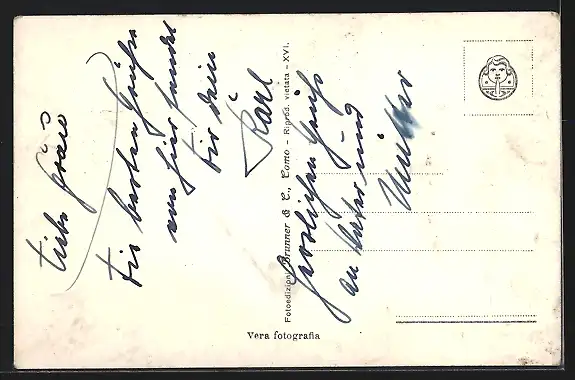 Liebe
Die besten Grüße
von hier sendet
Dir Dein
Karl
Herzlichen Gruß
an Vater und
Mutter
Fotoedizioni Brunner & C., Como - Riprod. vietata - XVI.
Vera fotografia